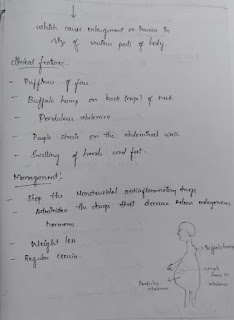 which cause enlargement or increase the
size of various parts of body.
Clinical features.
- Puffiness of face
- Buffalo hump on back (nape) of neck
- Pendulous abdomen
- Purple striae on the abdominal wall
- Swelling of hands and feet.
Management:
- Stop the Nonsteroidal antiinflammatory drugs
- the drugs that decrease endogenous
hormones
- Weight loss
- Regular exercise.
Buffalo hump
Pendulous
abdomen
purple
abdomen